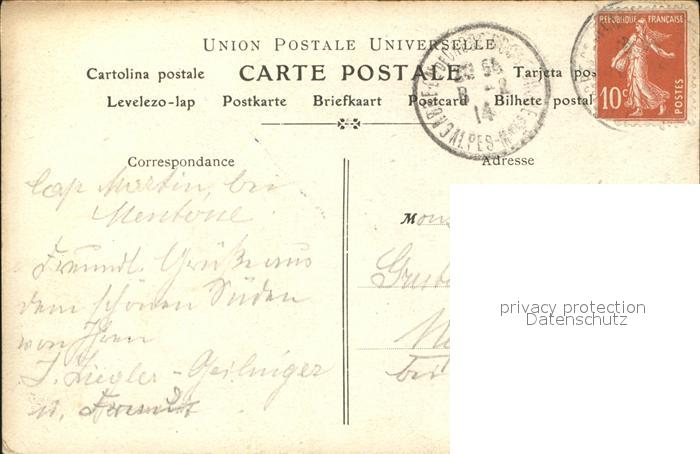 UNION POSTALE UNIVERSELLE
Cartolina postale CARTE POSTALE Tarjeta pos
Levelezo-lap Postkarte Briefkaart Postcard Bilhete postal
REPUBLIQUE FRANÇAISE
10c POSTES
14
Correspondance
Adresse
Cap Martin, bei
Mentone
Freundl. Grüße aus
dem schönen Süden
von Ihrem
J. Ziegler-Geilinger
u.
Mons
Gust
bei
privacy protection
Datenschutz